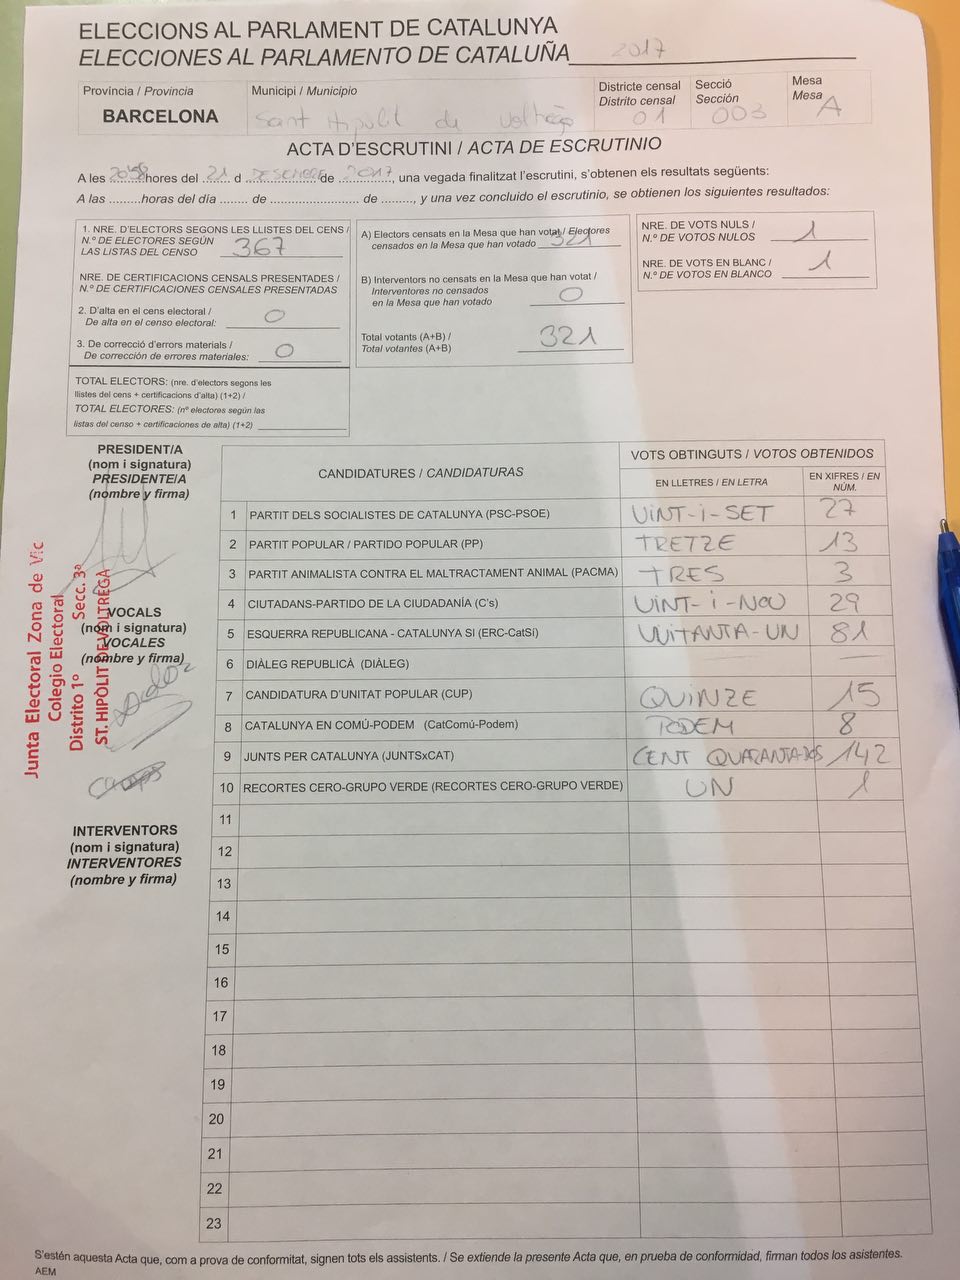 ELECCIONS AL PARLAMENT DE CATALUNYA
ELECCIONES AL PARLAMENTO DE CATALUÑA 2017
Província / Provincia
BARCELONA
Municipi / Municipio
Sant Hipòlit de Voltregà
Districte censal
Distrito censal
01
Secció
Sección
003
Mesa
Mesa
A
ACTA D'ESCRUTINI / ACTA DE ESCRUTINIO
A les ........ hores del 21 d DESEMBRE de 2017, una vegada finalitzat l'escrutini, s'obtenen els resultats següents:
A las .........horas del día ........ de ......................... de ........., y una vez concluido el escrutinio, se obtienen los siguientes resultados:
1. NRE. D'ELECTORS SEGONS LES LLISTES DEL CENS /
N.º DE ELECTORES SEGÚN
LAS LISTAS DEL CENSO 367
NRE. DE CERTIFICACIONS CENSALS PRESENTADES /
N.º DE CERTIFICACIONES CENSALES PRESENTADAS
2. D'alta en el cens electoral /
De alta en el censo electoral: 0
3. De correcció d'errors materials /
De corrección de errores materiales: 0
TOTAL ELECTORS: (nre. d'electors segons les
llistes del cens + certificacions d'alta) (1+2) /
TOTAL ELECTORES: (nº electores según las
listas del censo + certificaciones de alta) (1+2)
A) Electors censats en la Mesa que han votat / Electores
censados en la Mesa que han votado 321
B) Interventors no censats en la Mesa que han votat /
Interventores no censados
en la Mesa que han votado 0
Total votants (A+B) /
Total votantes (A+B) 321
NRE. DE VOTS NULS /
N.º DE VOTOS NULOS 1
NRE. DE VOTS EN BLANC /
N.º DE VOTOS EN BLANCO 1
PRESIDENT/A
(nom i signatura)
PRESIDENTE/A
(nombre y firma)
VOCALS
(nom i signatura)
VOCALES
(nombre y firma)
INTERVENTORS
(nom i signatura)
INTERVENTORES
(nombre y firma)
Junta Electoral Zona de Vic
Colegio Electoral
Distrito 1º Secc. 3ª
ST. HIPÒLIT DE VOLTREGÀ
CANDIDATURES / CANDIDATURAS
VOTS OBTINGUTS / VOTOS OBTENIDOS
EN LLETRES / EN LETRA
EN XIFRES / EN NÚM.
1 PARTIT DELS SOCIALISTES DE CATALUNYA (PSC-PSOE) VINT-i-SET 27
2 PARTIT POPULAR / PARTIDO POPULAR (PP) TRETZE 13
3 PARTIT ANIMALISTA CONTRA EL MALTRACTAMENT ANIMAL (PACMA) TRES 3
4 CIUTADANS-PARTIDO DE LA CIUDADANÍA (C's) VINT-i-NOU 29
5 ESQUERRA REPUBLICANA - CATALUNYA SI (ERC-CatSí) VUITANTA-UN 81
6 DIÀLEG REPUBLICÀ (DIÀLEG)
7 CANDIDATURA D'UNITAT POPULAR (CUP) QUINZE 15
8 CATALUNYA EN COMÚ-PODEM (CatComú-Podem) PODEM 8
9 JUNTS PER CATALUNYA (JUNTSxCAT) CENT QUARANTA-DOS 142
10 RECORTES CERO-GRUPO VERDE (RECORTES CERO-GRUPO VERDE) UN 1
11
12
13
14
15
16
17
18
19
20
21
22
23
S'estén aquesta Acta que, com a prova de conformitat, signen tots els assistents. / Se extiende la presente Acta que, en prueba de conformidad, firman todos los asistentes.
AEM